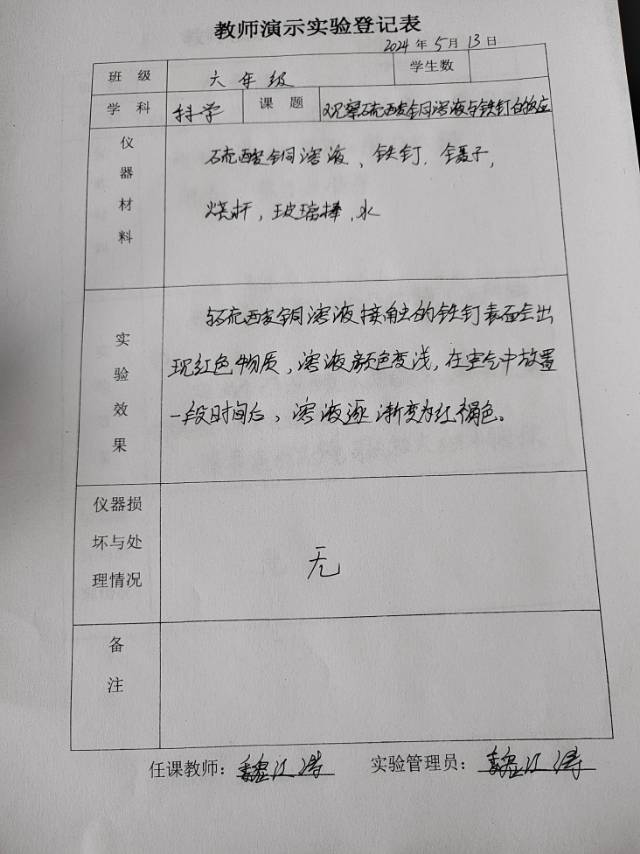 教师演示实验登记表
2024 年 5 月 13 日
班 级 六年级 学生数
学 科 科学 课 题 观察硫酸铜溶液与铁钉的反应
仪器材料
硫酸铜溶液、铁钉、镊子,
烧杯,玻璃棒,水
实验效果
与硫酸铜溶液接触的铁钉表面会出
现红色物质,溶液颜色变浅,在空气中放置
一段时间后,溶液逐渐变为红褐色。
仪器损
坏与处
理情况
无
备注
任课教师:魏江涛 实验管理员:魏江涛